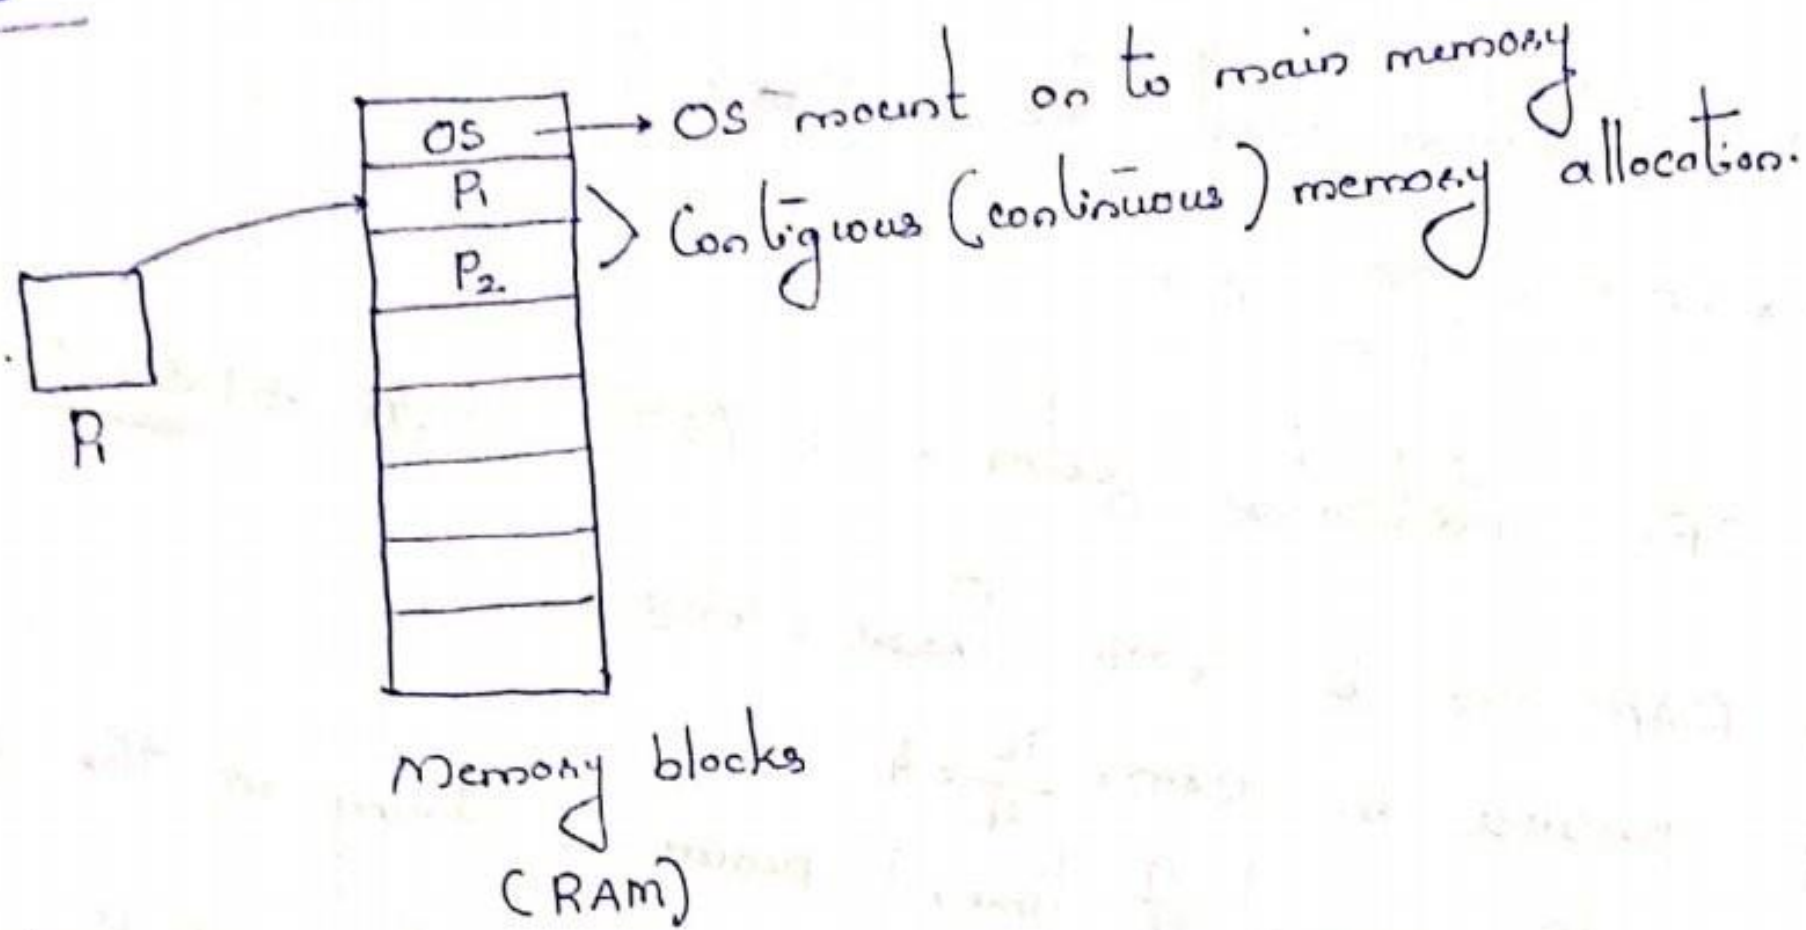 OS → OS mount on to main memory
P1
Contiguous (continuous) memory allocation.
P2.
R
Memory blocks
(RAM)